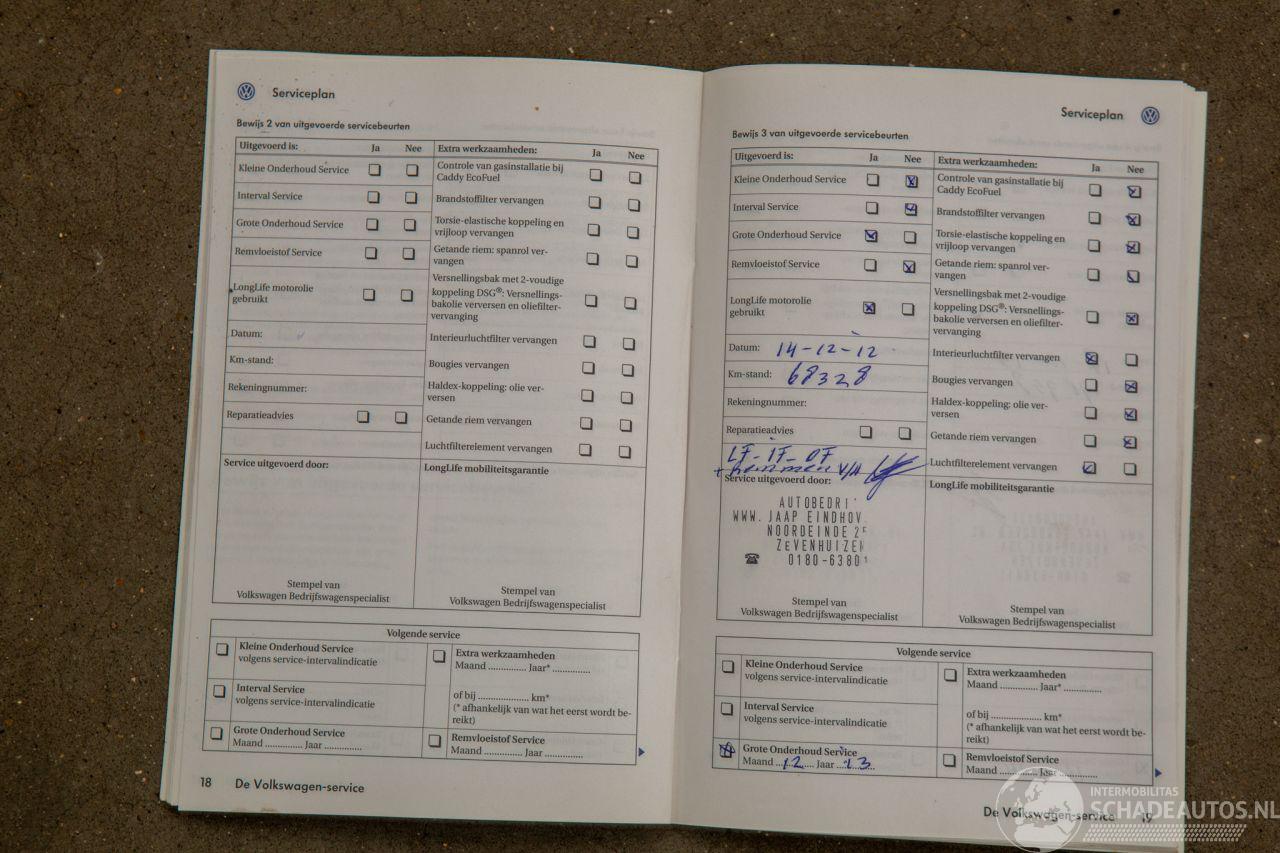 Serviceplan
Bewijs 2 van uitgevoerde servicebeurten
Uitgevoerd is: Ja Nee
Kleine Onderhoud Service
Interval Service
Grote Onderhoud Service
Remvloeistof Service
LongLife motorolie
gebruikt
Datum:
Km-stand:
Rekeningnummer:
Reparatieadvies
Extra werkzaamheden: Ja Nee
Controle van gasinstallatie bij
Caddy EcoFuel
Brandstoffilter vervangen
Torsie-elastische koppeling en
vrijloop vervangen
Getande riem: spanrol ver-
vangen
Versnellingsbak met 2-voudige
koppeling DSG®: Versnellings-
bakolie verversen en oliefilter-
vervanging
Interieurluchtfilter vervangen
Bougies vervangen
Haldex-koppeling: olie ver-
versen
Getande riem vervangen
Luchtfilterelement vervangen
Service uitgevoerd door:
Stempel van
Volkswagen Bedrijfswagenspecialist
LongLife mobiliteitsgarantie
Stempel van
Volkswagen Bedrijfswagenspecialist
Volgende service
Kleine Onderhoud Service
volgens service-intervalindicatie
Interval Service
volgens service-intervalindicatie
Grote Onderhoud Service
Maand .............. Jaar ..............
Extra werkzaamheden
Maand .............. Jaar* ..............
of bij .................... km*
(* afhankelijk van wat het eerst wordt be-
reikt)
Remvloeistof Service
Maand .............. Jaar ..............
18 De Volkswagen-service
Serviceplan
Bewijs 3 van uitgevoerde servicebeurten
Uitgevoerd is: Ja Nee
Kleine Onderhoud Service
Interval Service
Grote Onderhoud Service
Remvloeistof Service
LongLife motorolie
gebruikt
Datum: 14-12-12
Km-stand: 68328
Rekeningnummer:
Reparatieadvies
LF-IF-OF
Extra werkzaamheden: Ja Nee
Controle van gasinstallatie bij
Caddy EcoFuel
Brandstoffilter vervangen
Torsie-elastische koppeling en
vrijloop vervangen
Getande riem: spanrol ver-
vangen
Versnellingsbak met 2-voudige
koppeling DSG®: Versnellings-
bakolie verversen en oliefilter-
vervanging
Interieurluchtfilter vervangen
Bougies vervangen
Haldex-koppeling: olie ver-
versen
Getande riem vervangen
Luchtfilterelement vervangen
+ remmen V/A
Service uitgevoerd door:
AUTOBEDRI
WWW. JAAP EINDHOV
NOORDEINDE
ZEVENHUIZEN
0180-6380
Stempel van
Volkswagen Bedrijfswagenspecialist
LongLife mobiliteitsgarantie
Stempel van
Volkswagen Bedrijfswagenspecialist
Volgende service
Kleine Onderhoud Service
volgens service-intervalindicatie
Interval Service
volgens service-intervalindicatie
Grote Onderhoud Service
Maand 12 Jaar 13
Extra werkzaamheden
Maand .............. Jaar* ..............
of bij .................... km*
(* afhankelijk van wat het eerst wordt be-
reikt)
Remvloeistof Service
Maand .............. Jaar ..............
De Volkswagen-service 19
INTERMOBILITAS
SCHADEAUTOS.NL